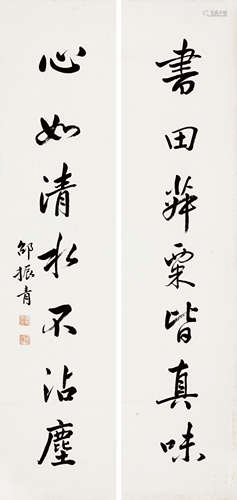 書田菽粟皆真味
心如清水不沾塵
邵振青